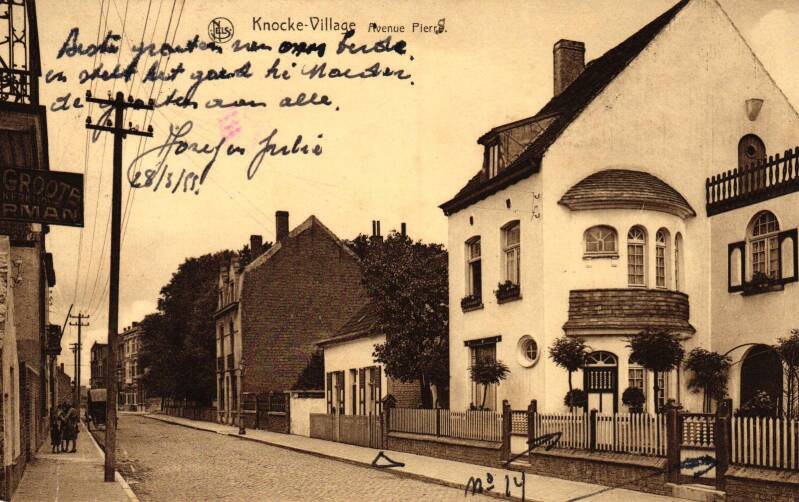 NELS
Knocke-Village Avenue Pierre.
Beste groeten van onze beide.
en stelt het goed hi Moeder.
de groeten aan alle.
Jozef en Julia
28/8/55.
GROOTE
RMAN
No 14